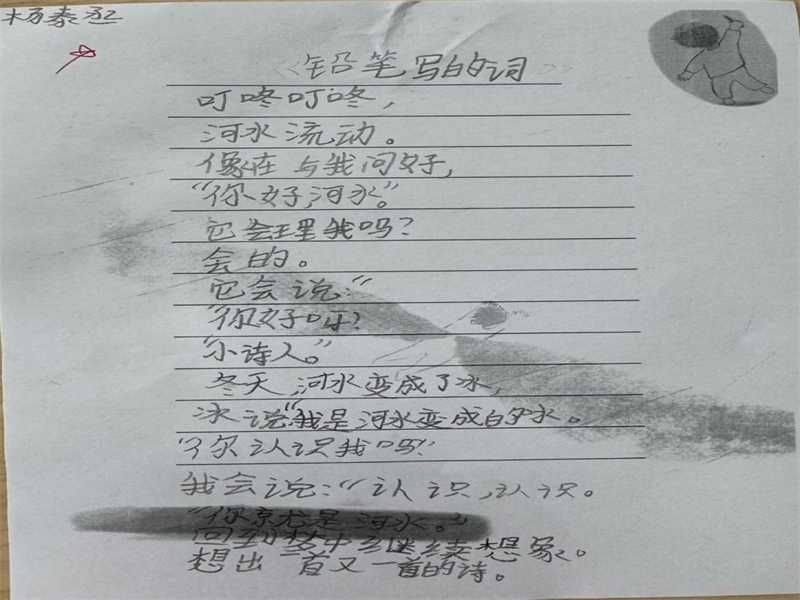 杨泰丞
《铅笔写的词》
叮咚叮咚，
河水流动。
像在与我问好，
“你好，河水。”
它会理我吗？
会的。
它会说：“
“你好呀！
“小诗人。”
冬天，河水变成了冰，
冰说“我是河水变成的冰。
“你认识我吗！
我会说：“认识，认识。
“你就是河水。”
回到梦中继续想象。
想出一首又一首的诗。